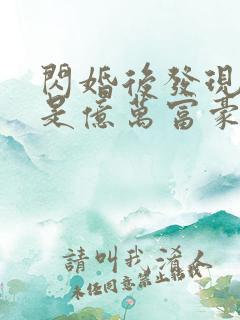 閃婚後發現
是億萬富豪
請叫我淆人
未經同意禁止轉載